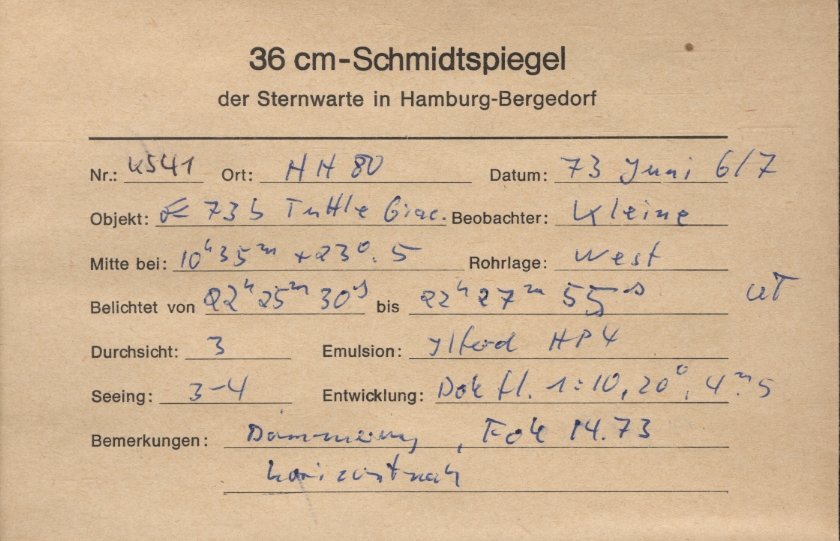 36 cm-Schmidtspiegel
der Sternwarte in Hamburg-Bergedorf
Nr.: 4541 Ort: HH 80 Datum: 73 Juni 6/7
Objekt: 73b Tuttle Giac. Beobachter: Kleine
Mitte bei: 10h 35m +23°.5 Rohrlage: West
Belichtet von 22h 25m 30s bis 22h 27m 55s UT
Durchsicht: 3 Emulsion: Ilford HP4
Seeing: 3-4 Entwicklung: Dok fl. 1:10, 20°, 4m.5
Bemerkungen: Dämmerung, Fok 14.73
horizontnah